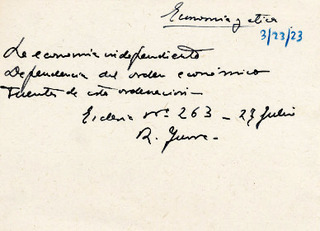 Economía y etica
3/23/23
La economia independiente
Dependencia del orden económico
Fuentes de esta ordenación —
Ecclesia Nº 263 — 27 Julio
R.